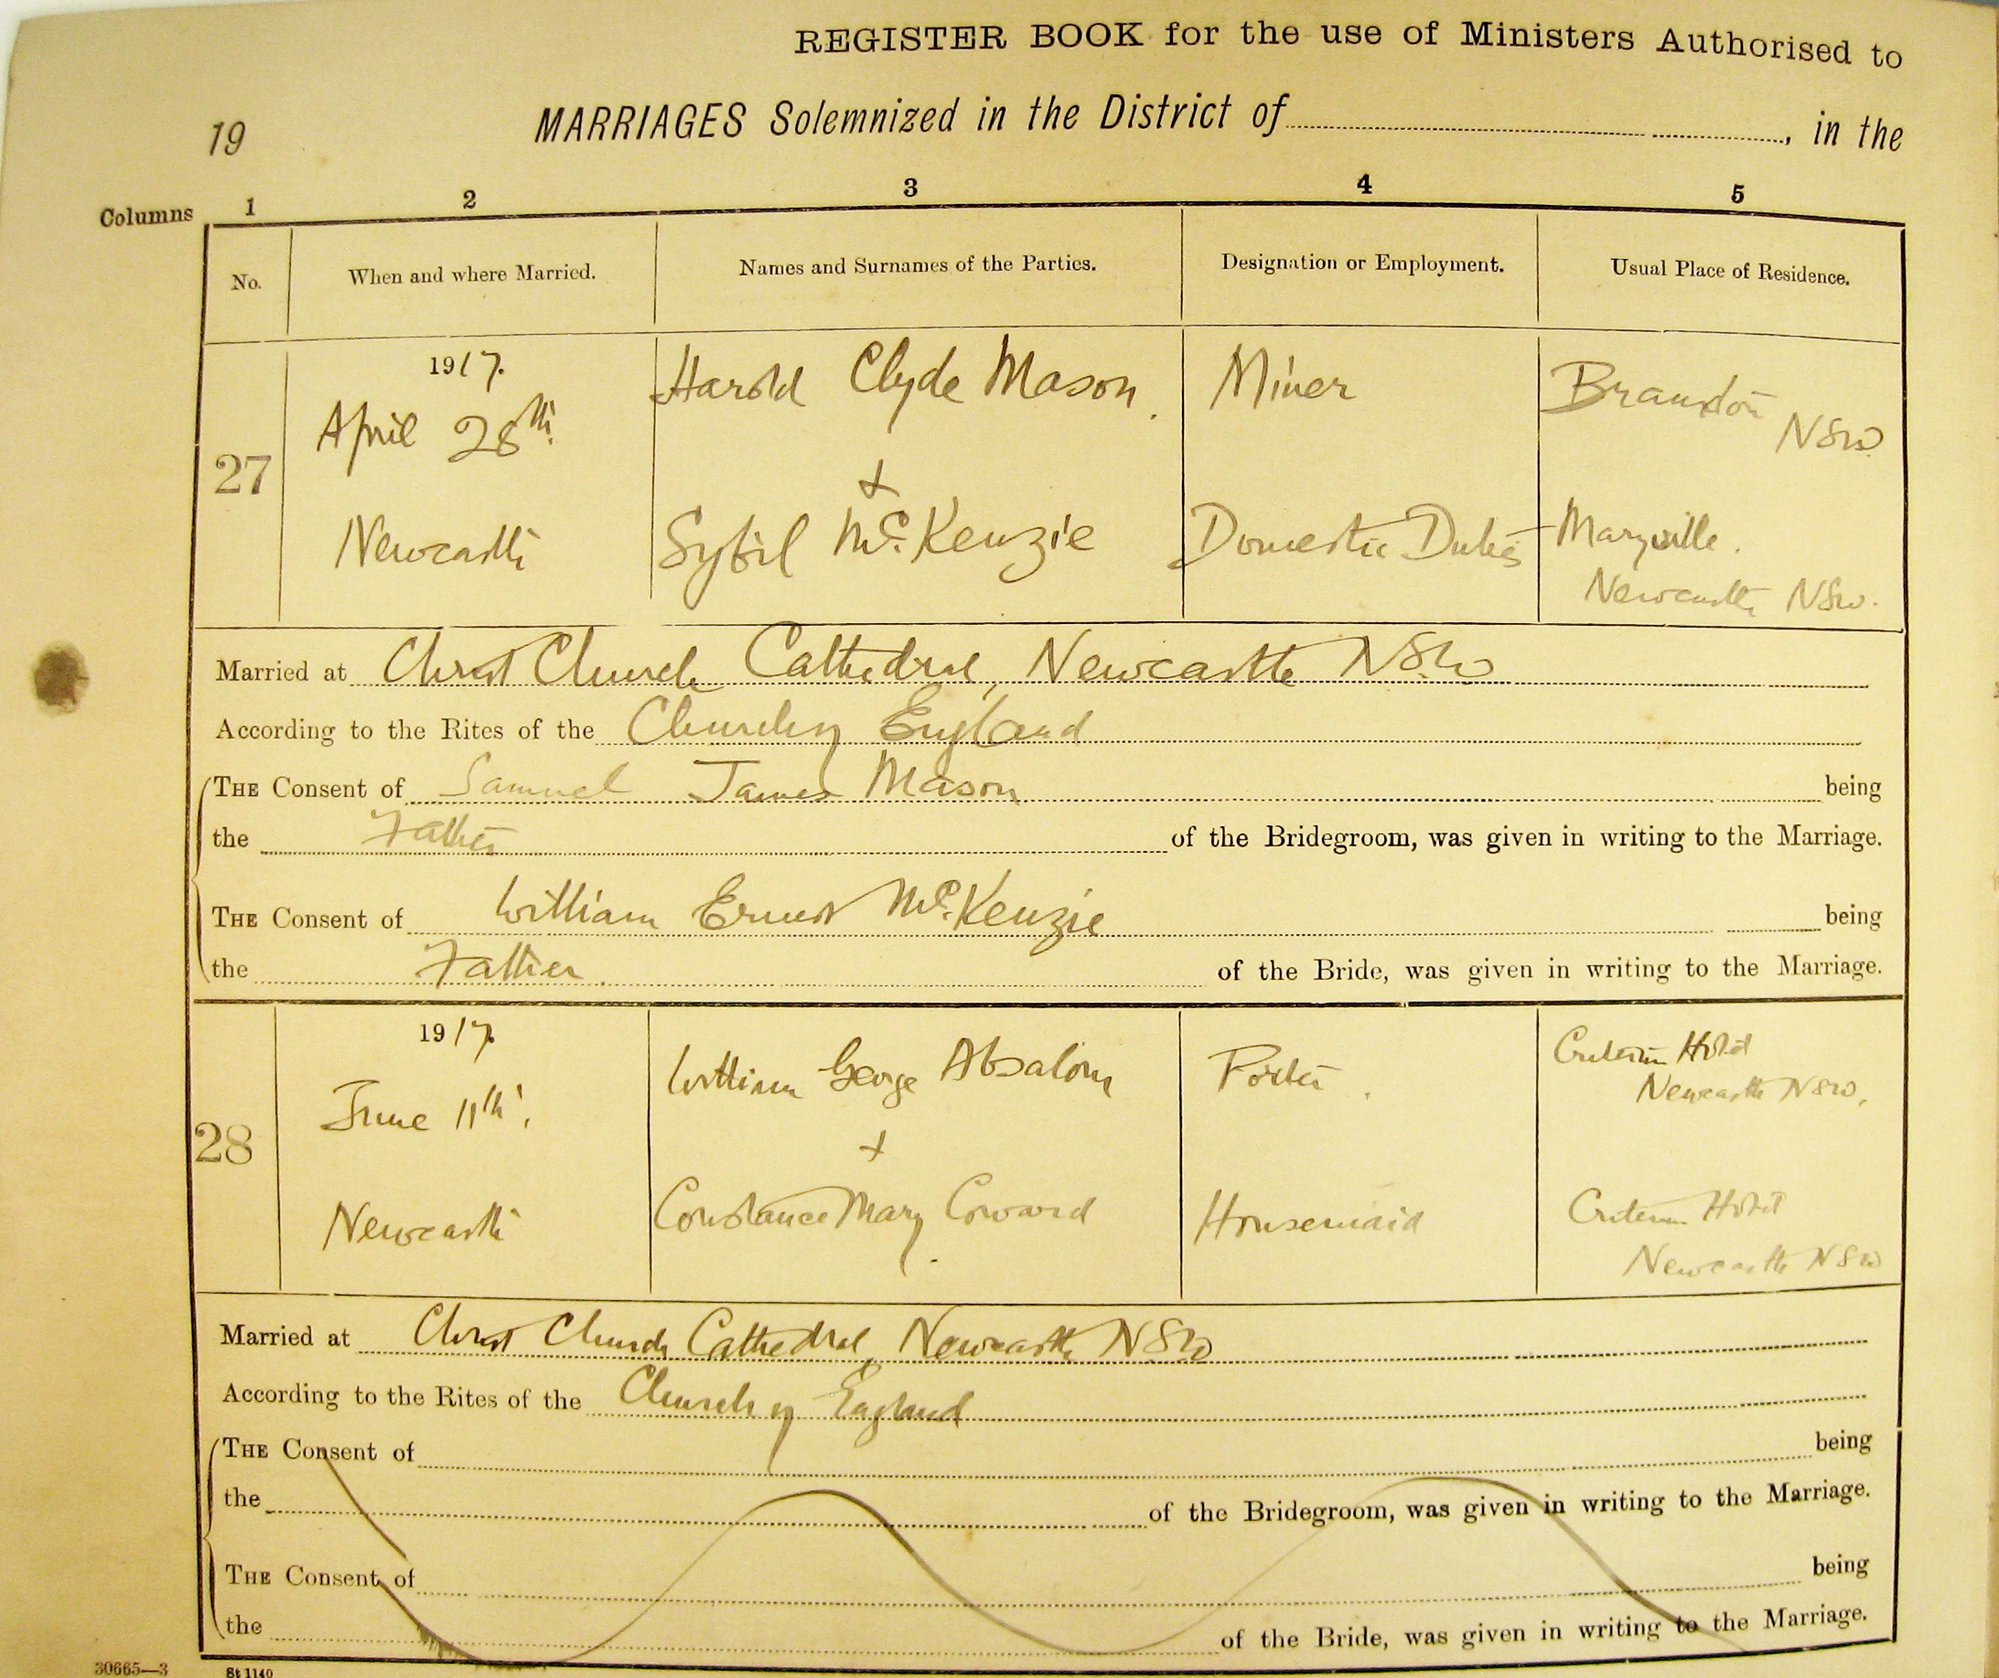 REGISTER BOOK for the use of Ministers Authorised to
19
MARRIAGES Solemnized in the District of , in the
Columns 1 2 3 4 5
No. When and where Married. Names and Surnames of the Parties. Designation or Employment. Usual Place of Residence.
1917.
Harold Clyde Mason. Miner
NSW.
April 28th.
27
+
Newcastle
Sybil McKenzie
Domestic Duties
Maryville.
Newcastle NSW.
Married at Christ Church Cathedral, Newcastle NSW
According to the Rites of the Church of England
THE Consent of Samuel James Mason being
the Father of the Bridegroom, was given in writing to the Marriage.
THE Consent of William Ernest McKenzie being
the Father. of the Bride, was given in writing to the Marriage.
1917.
William George Absalom
Porter.
Criterion Hotel
Newcastle NSW.
June 11th.
28
+
Newcastle
Constance Mary Coward.
Housemaid
Criterion Hotel
Newcastle NSW
Married at Christ Church Cathedral, Newcastle NSW
According to the Rites of the Church of England
THE Consent of being
the of the Bridegroom, was given in writing to the Marriage.
THE Consent of being
the of the Bride, was given in writing to the Marriage.
30665—3 St 1140